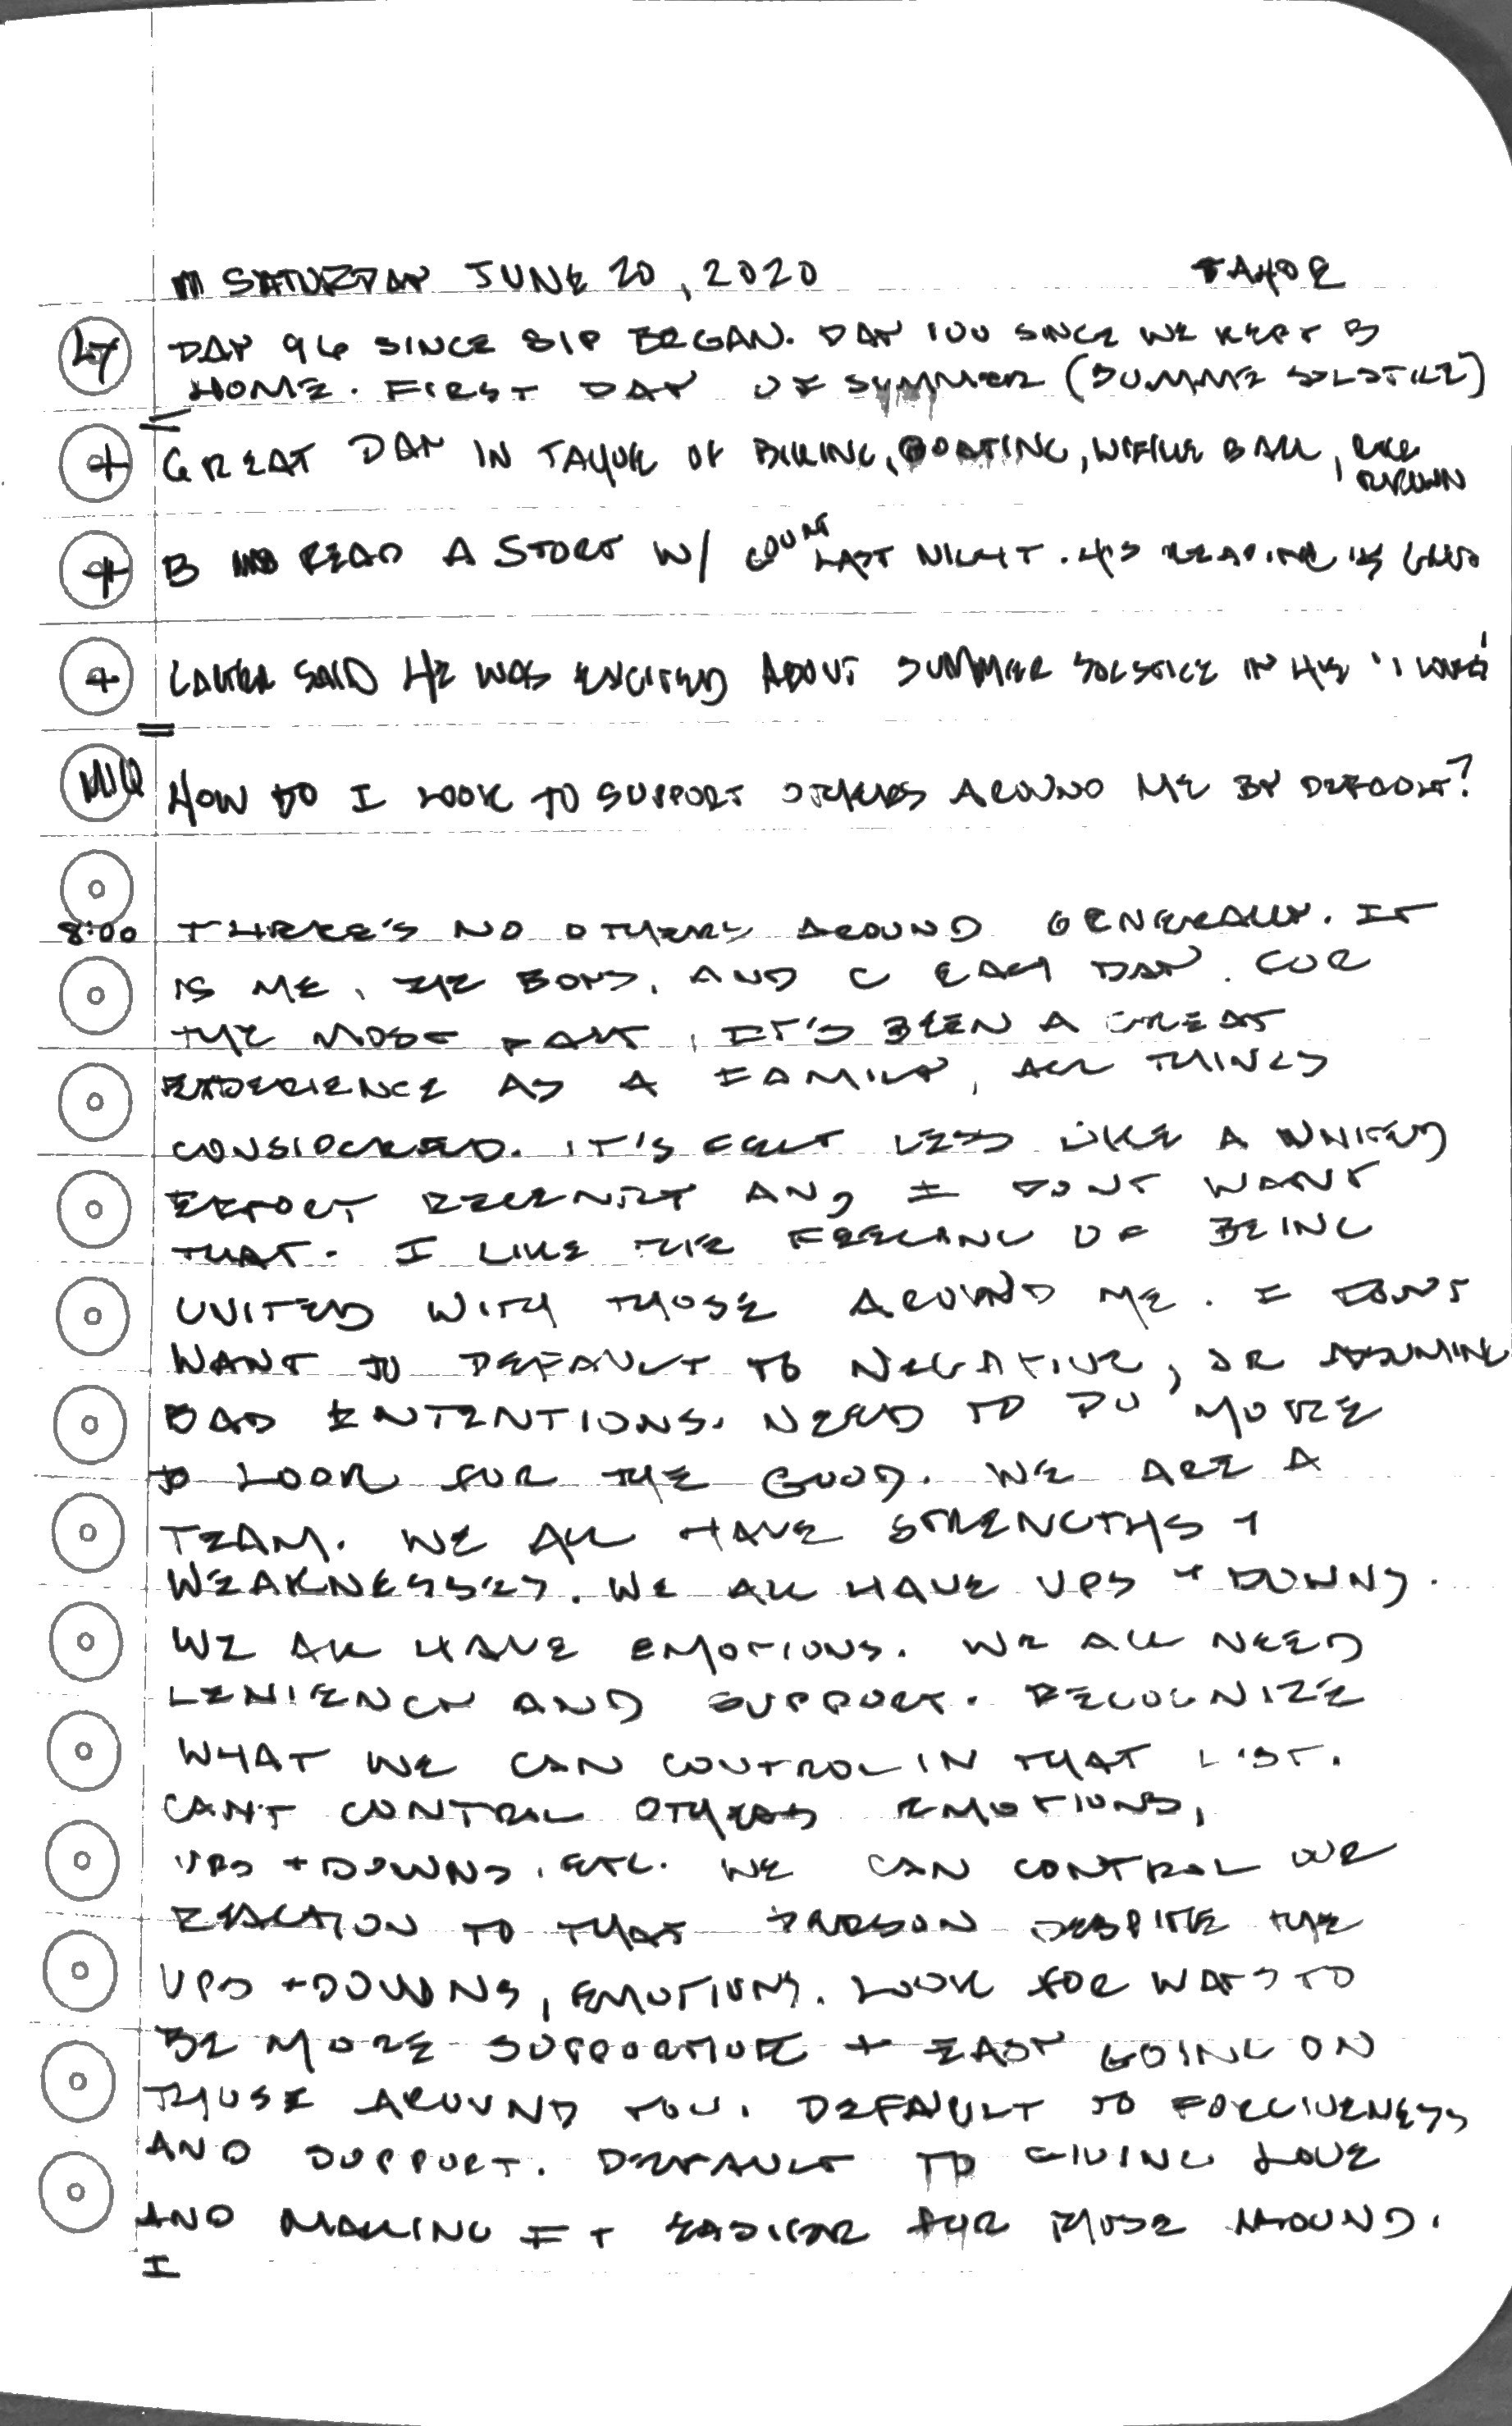 SATURDAY JUNE 20, 2020 TAHOE
DAY 96 SINCE SIP BEGAN. DAY 100 SINCE WE KEPT B
HOME. FIRST DAY OF SUMMER (SUMME SOLSTICE)
+ GREAT DAY IN TAHOE OF BIKING, BOATING, WIFFLE BALL,
+ B READ A STORY W/ LAST NIGHT. HIS READING IS GOOD
+ LATER SAID HE WAS EXCITED ABOUT SUMMER SOLSTICE IN HIS "I LOVES"
WQ HOW DO I LOOK TO SUPPORT OTHERS AROUND ME BY DEFAULT?
8:00 THERE'S NO OTHERS AROUND GENERALLY. IT
IS ME, THE BOYS, AND C EACH DAY. FOR
THE MOST PART, IT'S BEEN A GREAT
EXPERIENCE AS A FAMILY, ALL THINGS
CONSIDERED. IT'S FELT LESS LIKE A UNITED
EFFORT RECENTLY AND I DONT WANT
THAT. I LIKE THE FEELING OF BEING
UNITED WITH THOSE AROUND ME. I DONT
WANT TO DEFAULT TO NEGATIVE, OR ASSUMING
BAD INTENTIONS. NEED TO DO MORE
TO LOOK FOR THE GOOD. WE ARE A
TEAM. WE ALL HAVE STRENGTHS +
WEAKNESSES. WE ALL HAVE UPS + DOWNS.
WE ALL HAVE EMOTIONS. WE ALL NEED
LENIENCY AND SUPPORT. RECOGNIZE
WHAT WE CAN CONTROL IN THAT LIST.
CAN'T CONTROL OTHERS EMOTIONS,
UPS + DOWNS, ETC. WE CAN CONTROL OUR
REACTION TO THAT PERSON DESPITE THE
UPS + DOWNS, EMOTIONS. LOOK FOR WAYS TO
BE MORE SUPPORTIVE + EASY GOING ON
THOSE AROUND YOU. DEFAULT TO FORGIVENESS
AND SUPPORT. DEFAULT TO GIVING LOVE
AND MAKING IT EASIER FOR THOSE AROUND.
I